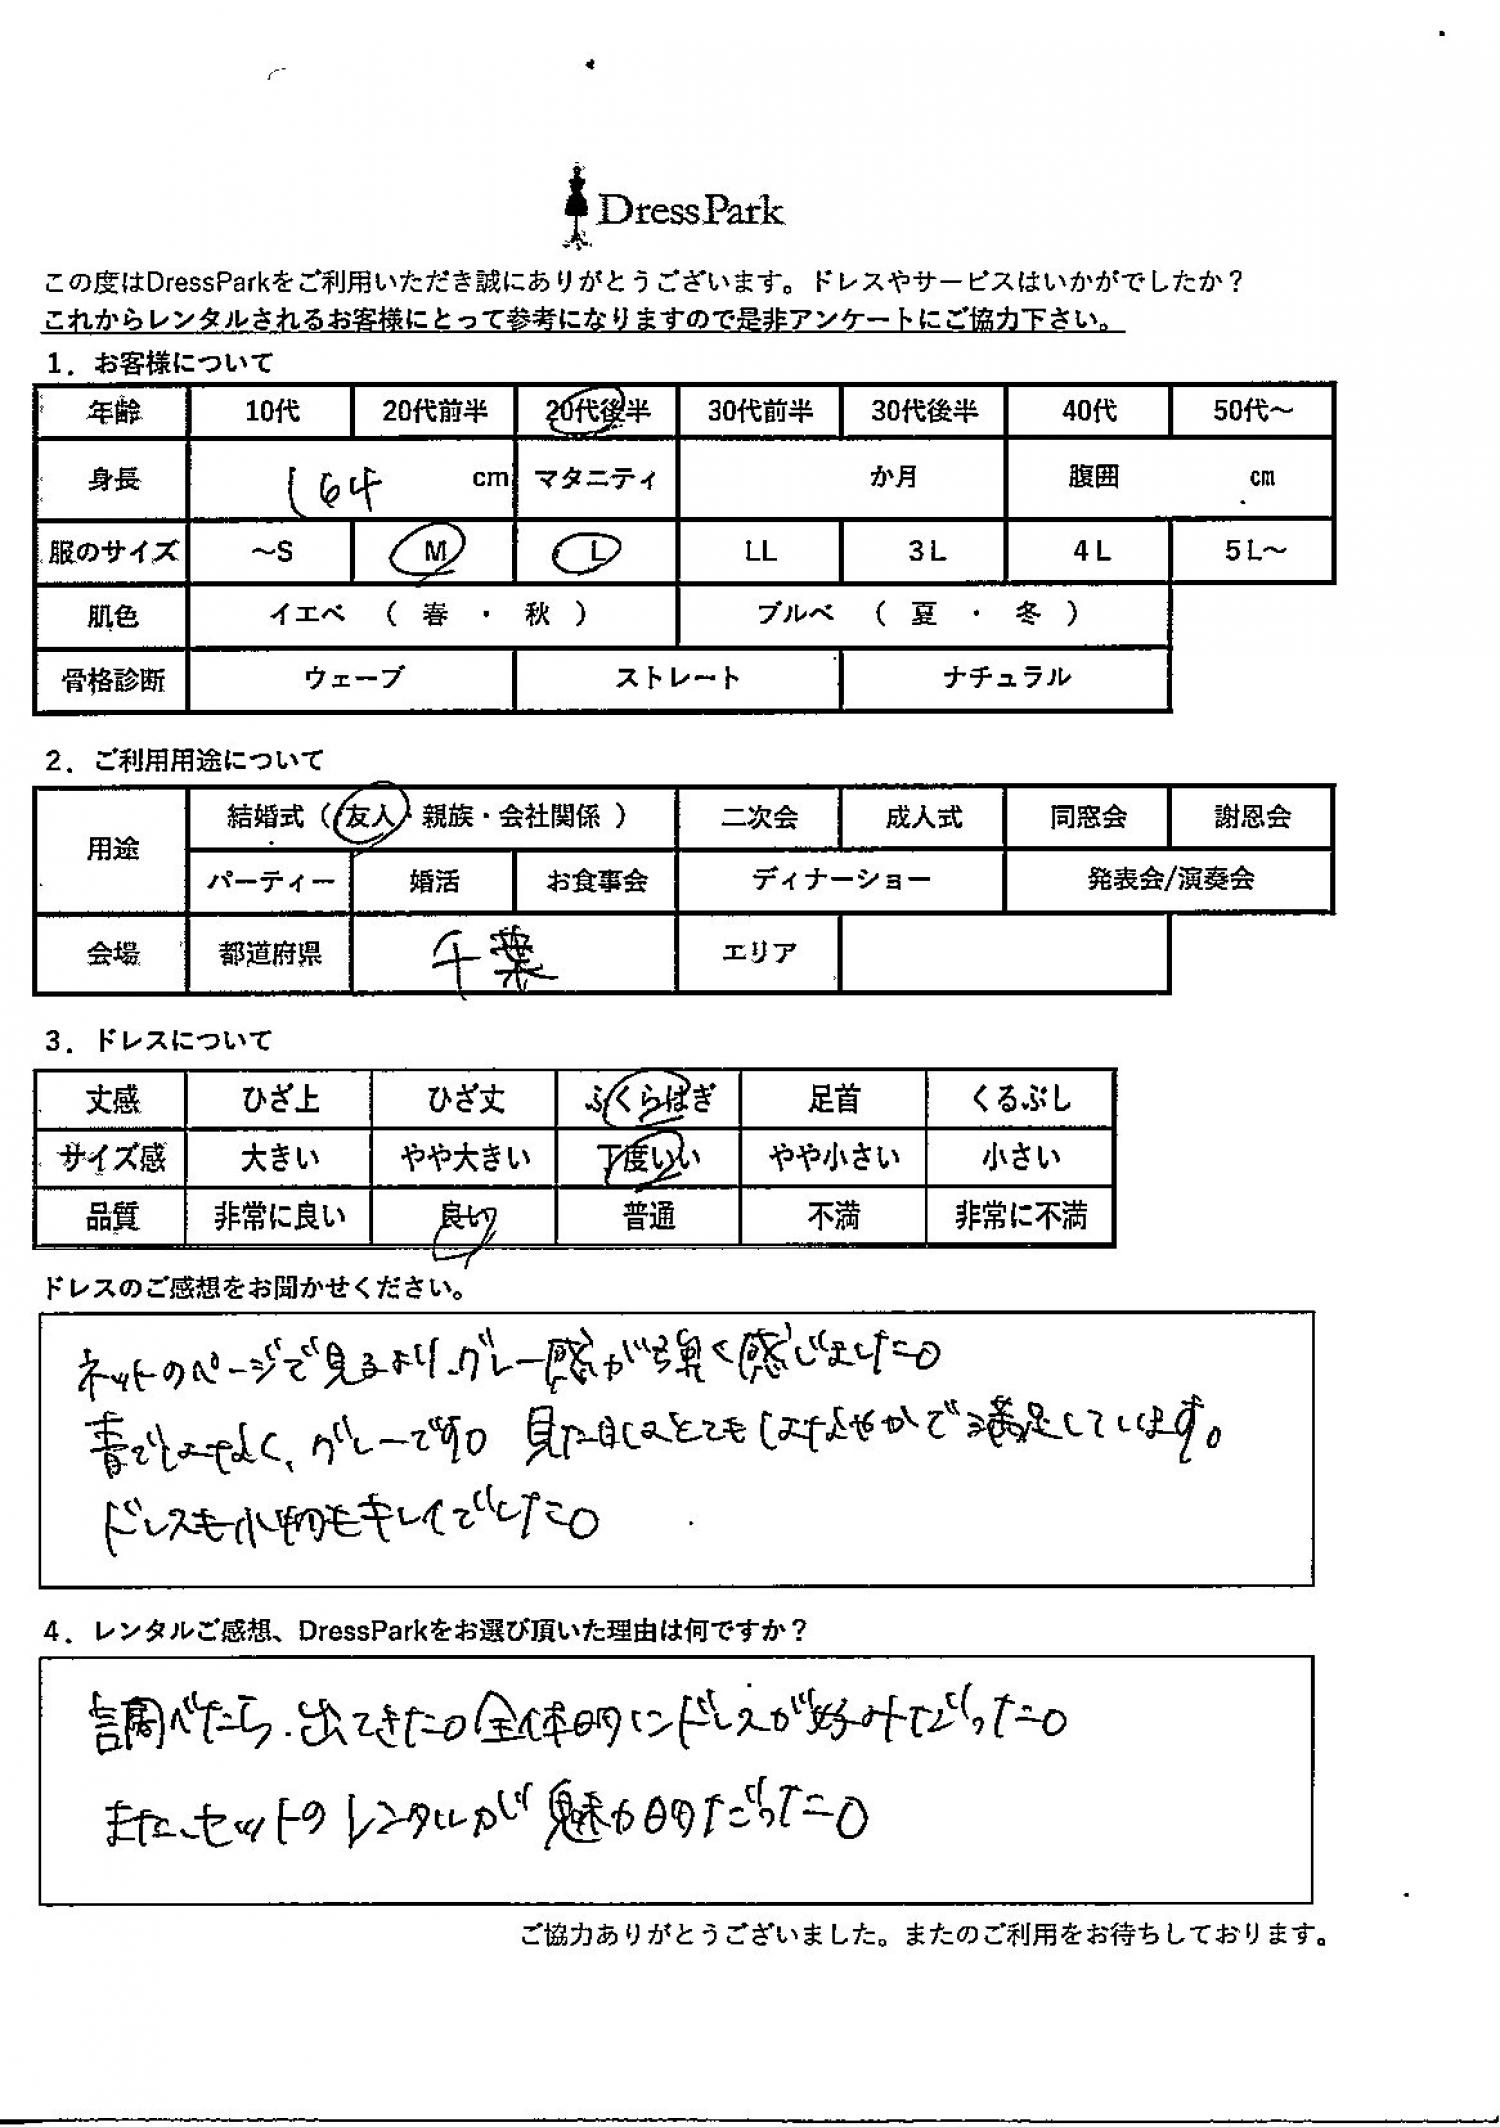 DressPark
この度はDressParkをご利用いただき誠にありがとうございます。ドレスやサービスはいかがでしたか？
これからレンタルされるお客様にとって参考になりますので是非アンケートにご協力下さい。
1．お客様について
年齢 10代 20代前半 20代後半 30代前半 30代後半 40代 50代～
身長 164 cm マタニティ か月 腹囲 cm
服のサイズ ～S M L LL 3L 4L 5L～
肌色 イエベ （ 春 ・ 秋 ） ブルベ （ 夏 ・ 冬 ）
骨格診断 ウェーブ ストレート ナチュラル
2．ご利用用途について
用途 結婚式（ 友人・親族・会社関係 ） 二次会 成人式 同窓会 謝恩会
パーティー 婚活 お食事会 ディナーショー 発表会/演奏会
会場 都道府県 千葉 エリア
3．ドレスについて
丈感 ひざ上 ひざ丈 ふくらはぎ 足首 くるぶし
サイズ感 大きい やや大きい 丁度いい やや小さい 小さい
品質 非常に良い 良い 普通 不満 非常に不満
ドレスのご感想をお聞かせください。
ネットのページで見るより、グレー感が強く感じました。
青ではなく、グレーです。見た目はとてもはなやかで満足しています。
ドレスも小物もキレイでした。
4．レンタルご感想、DressParkをお選び頂いた理由は何ですか？
調べたら、出てきた。全体的にドレスが好みだった。
また、セットのレンタルが魅力的だった。
ご協力ありがとうございました。またのご利用をお待ちしております。